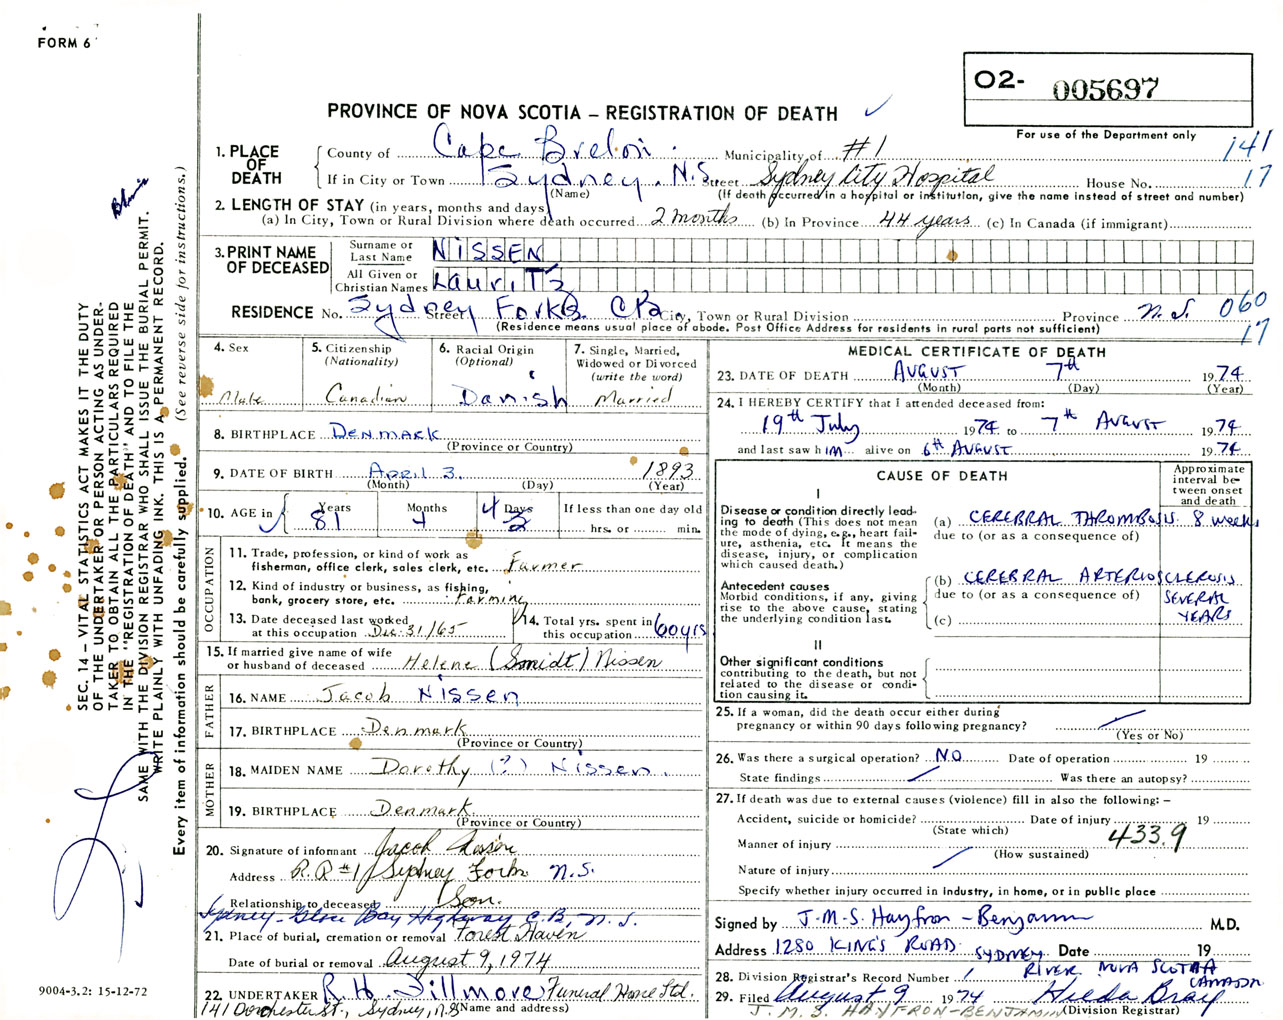 FORM 6
O2- 005697
PROVINCE OF NOVA SCOTIA – REGISTRATION OF DEATH
For use of the Department only
141
17
1. PLACE OF DEATH
County of Cape Breton Municipality of #1
If in City or Town Sydney, N.S. Street Sydney City Hospital House No.
(Name) (If death occurred in a hospital or institution, give the name instead of street and number)
2. LENGTH OF STAY (in years, months and days)
(a) In City, Town or Rural Division where death occurred 2 months (b) In Province 44 years (c) In Canada (if immigrant)
3. PRINT NAME OF DECEASED
Surname or Last Name NISSEN
All Given or Christian Names LAURITZ
RESIDENCE No. Street Sydney Forks CB City, Town or Rural Division Province N.S. 060
17
(Residence means usual place of abode. Post Office Address for residents in rural parts not sufficient)
4. Sex
Male
5. Citizenship
(Nationality)
Canadian
6. Racial Origin
(Optional)
Danish
7. Single, Married, Widowed or Divorced
(write the word)
Married
8. BIRTHPLACE DENMARK
(Province or Country)
9. DATE OF BIRTH April 3. 1893
(Month) (Day) (Year)
10. AGE in
Years 81
Months 4
Days 4
If less than one day old
hrs. or min.
OCCUPATION
11. Trade, profession, or kind of work as
fisherman, office clerk, sales clerk, etc. Farmer
12. Kind of industry or business, as fishing,
bank, grocery store, etc. Farming
13. Date deceased last worked
at this occupation Dec. 31/65
14. Total yrs. spent in
this occupation 60 yrs
15. If married give name of wife
or husband of deceased Helene (Smidt) Nissen
FATHER
16. NAME Jacob Nissen
17. BIRTHPLACE Denmark
(Province or Country)
MOTHER
18. MAIDEN NAME Dorothy (?) Nissen.
19. BIRTHPLACE Denmark
(Province or Country)
20. Signature of informant Jacob Nissen
Address R.R #1 Sydney Forks N.S.
Relationship to deceased Son.
Sydney-Glace Bay Highway C.B, N.S.
21. Place of burial, cremation or removal Forest Haven
Date of burial or removal August 9, 1974
22. UNDERTAKER R. H. Fillmore Funeral Home Ltd.
(Name and address)
141 Dorchester St., Sydney, N.S
MEDICAL CERTIFICATE OF DEATH
23. DATE OF DEATH AUGUST 7th 1974
(Month) (Day) (Year)
24. I HEREBY CERTIFY that I attended deceased from:
19th July 1974 to 7th AUGUST 1974
and last saw him alive on 6th AUGUST 1974
CAUSE OF DEATH
Approximate interval between onset and death
I
Disease or condition directly leading to death (This does not mean the mode of dying, e.g., heart failure, asthenia, etc. It means the disease, injury, or complication which caused death.)
(a) CEREBRAL THROMBOSIS. 8 weeks
due to (or as a consequence of)
Antecedent causes
Morbid conditions, if any, giving rise to the above cause, stating the underlying condition last.
(b) CEREBRAL ARTERIOSCLEROSIS
due to (or as a consequence of) SEVERAL YEARS
(c)
II
Other significant conditions
contributing to the death, but not related to the disease or condition causing it.
25. If a woman, did the death occur either during
pregnancy or within 90 days following pregnancy?
(Yes or No)
26. Was there a surgical operation? NO Date of operation 19
State findings Was there an autopsy?
27. If death was due to external causes (violence) fill in also the following: –
Accident, suicide or homicide? Date of injury 19
(State which)
433.9
Manner of injury
(How sustained)
Nature of injury
Specify whether injury occurred in industry, in home, or in public place
Signed by J.M.S. Hayfron-Benjamin M.D.
Address 1280 KING'S ROAD SYDNEY Date 19
RIVER NOVA SCOTIA CANADA
28. Division Registrar's Record Number
29. Filed August 9 1974 Hilda Bray
(Division Registrar)
J. M. S. HAYFRON-BENJAMIN
SEC. 14 – VITAL STATISTICS ACT MAKES IT THE DUTY
OF THE UNDERTAKER OR PERSON ACTING AS UNDER-
TAKER TO OBTAIN ALL THE PARTICULARS REQUIRED
IN THE "REGISTRATION OF DEATH" AND TO FILE THE
SAME WITH THE DIVISION REGISTRAR WHO SHALL ISSUE THE BURIAL PERMIT.
WRITE PLAINLY WITH UNFADING INK. THIS IS A PERMANENT RECORD.
Every item of information should be carefully supplied. (See reverse side for instructions.)
9004-3.2: 15-12-72